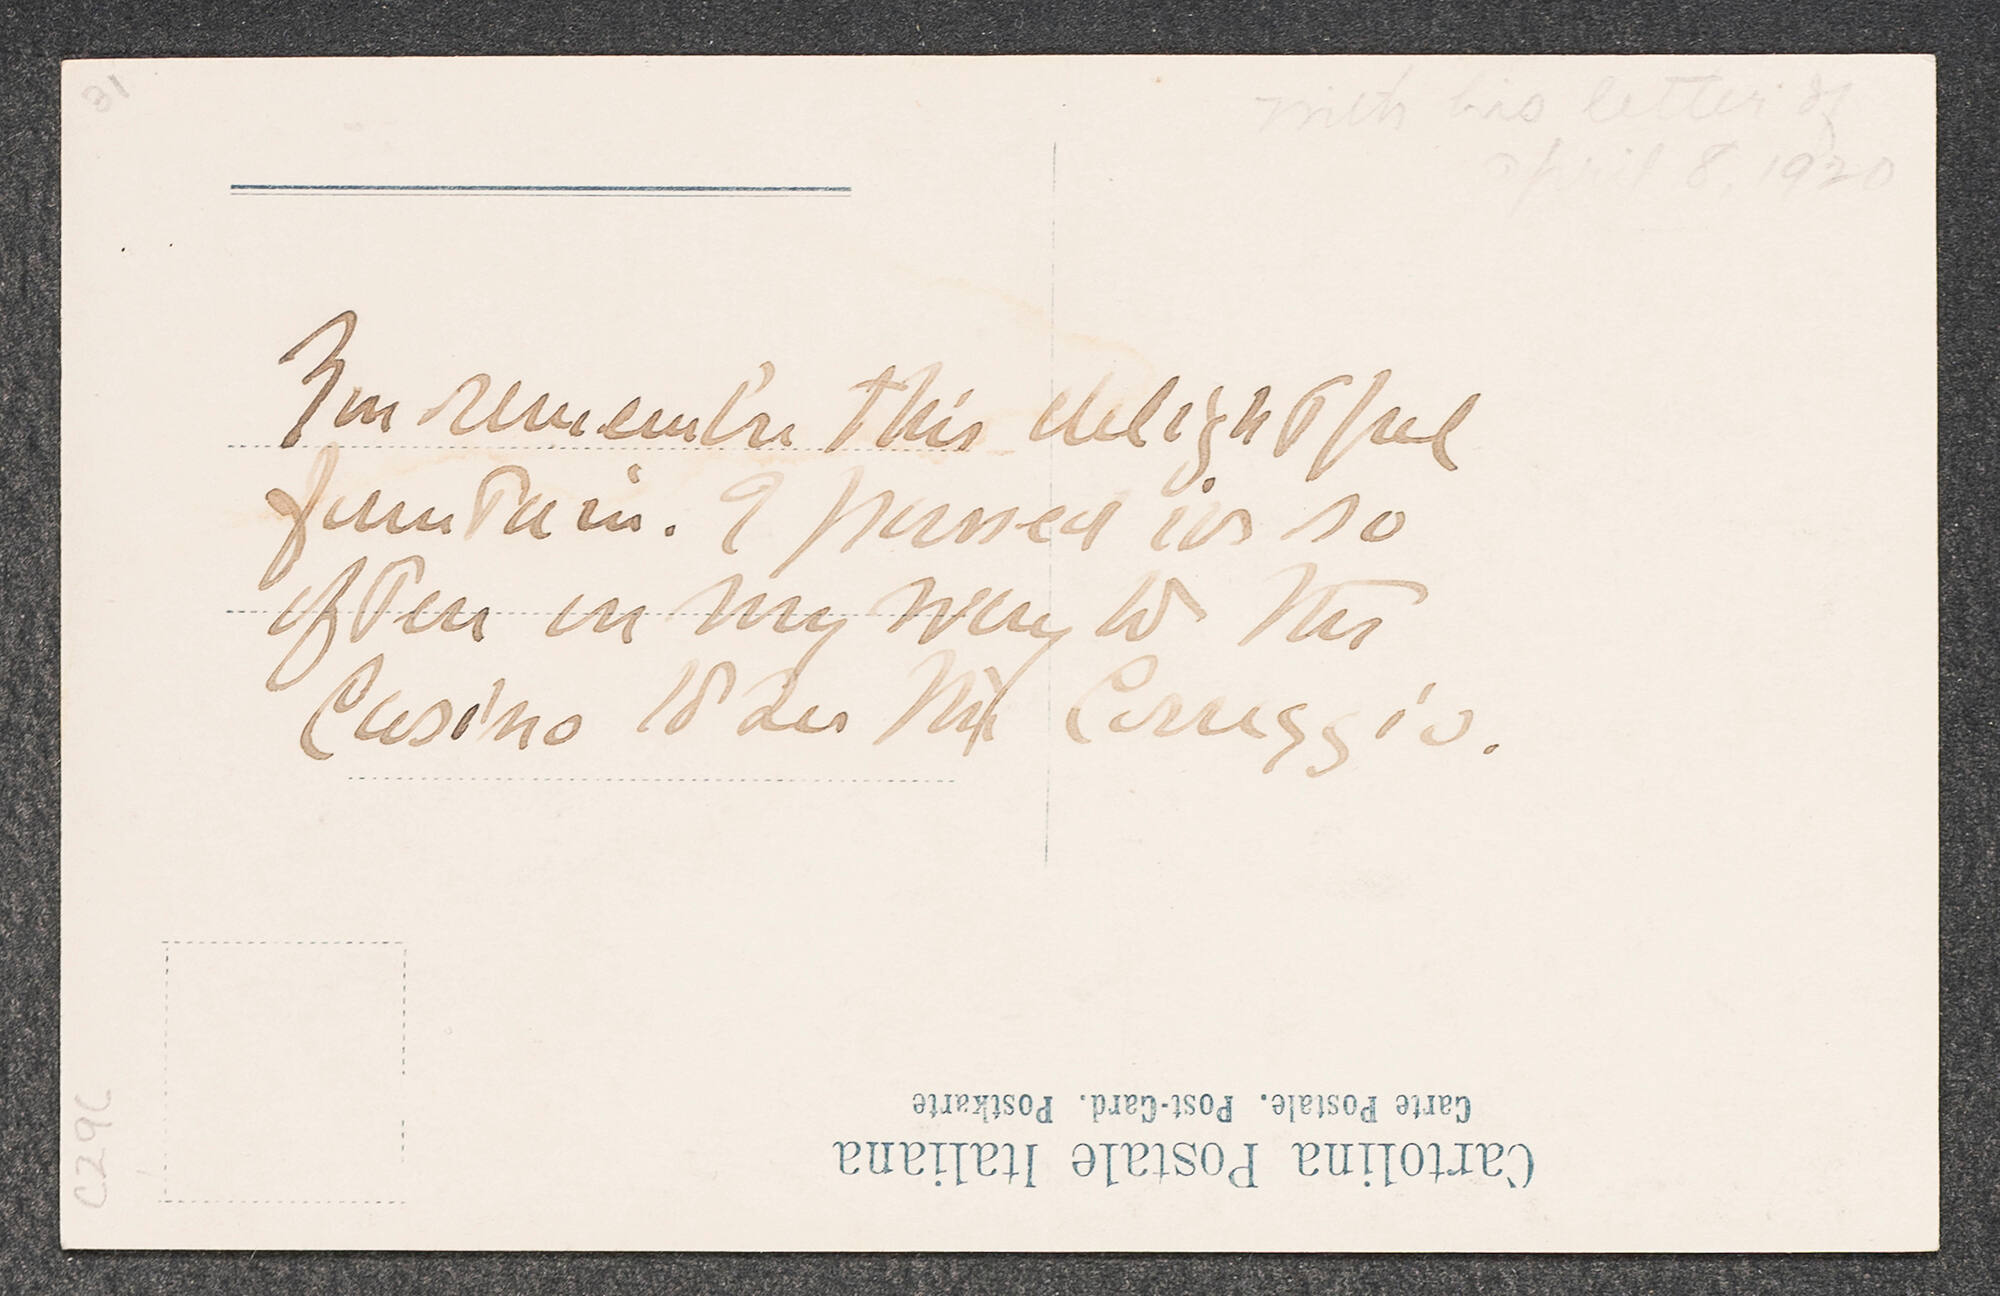 31
with his letter of
April 8, 1920
You remember this delightful
fountain. I passed it so
often on my way to the
Casino to see the Correggio.
C29C
Carte Postale. Post-Card. Postkarte
Cartolina Postale Italiana